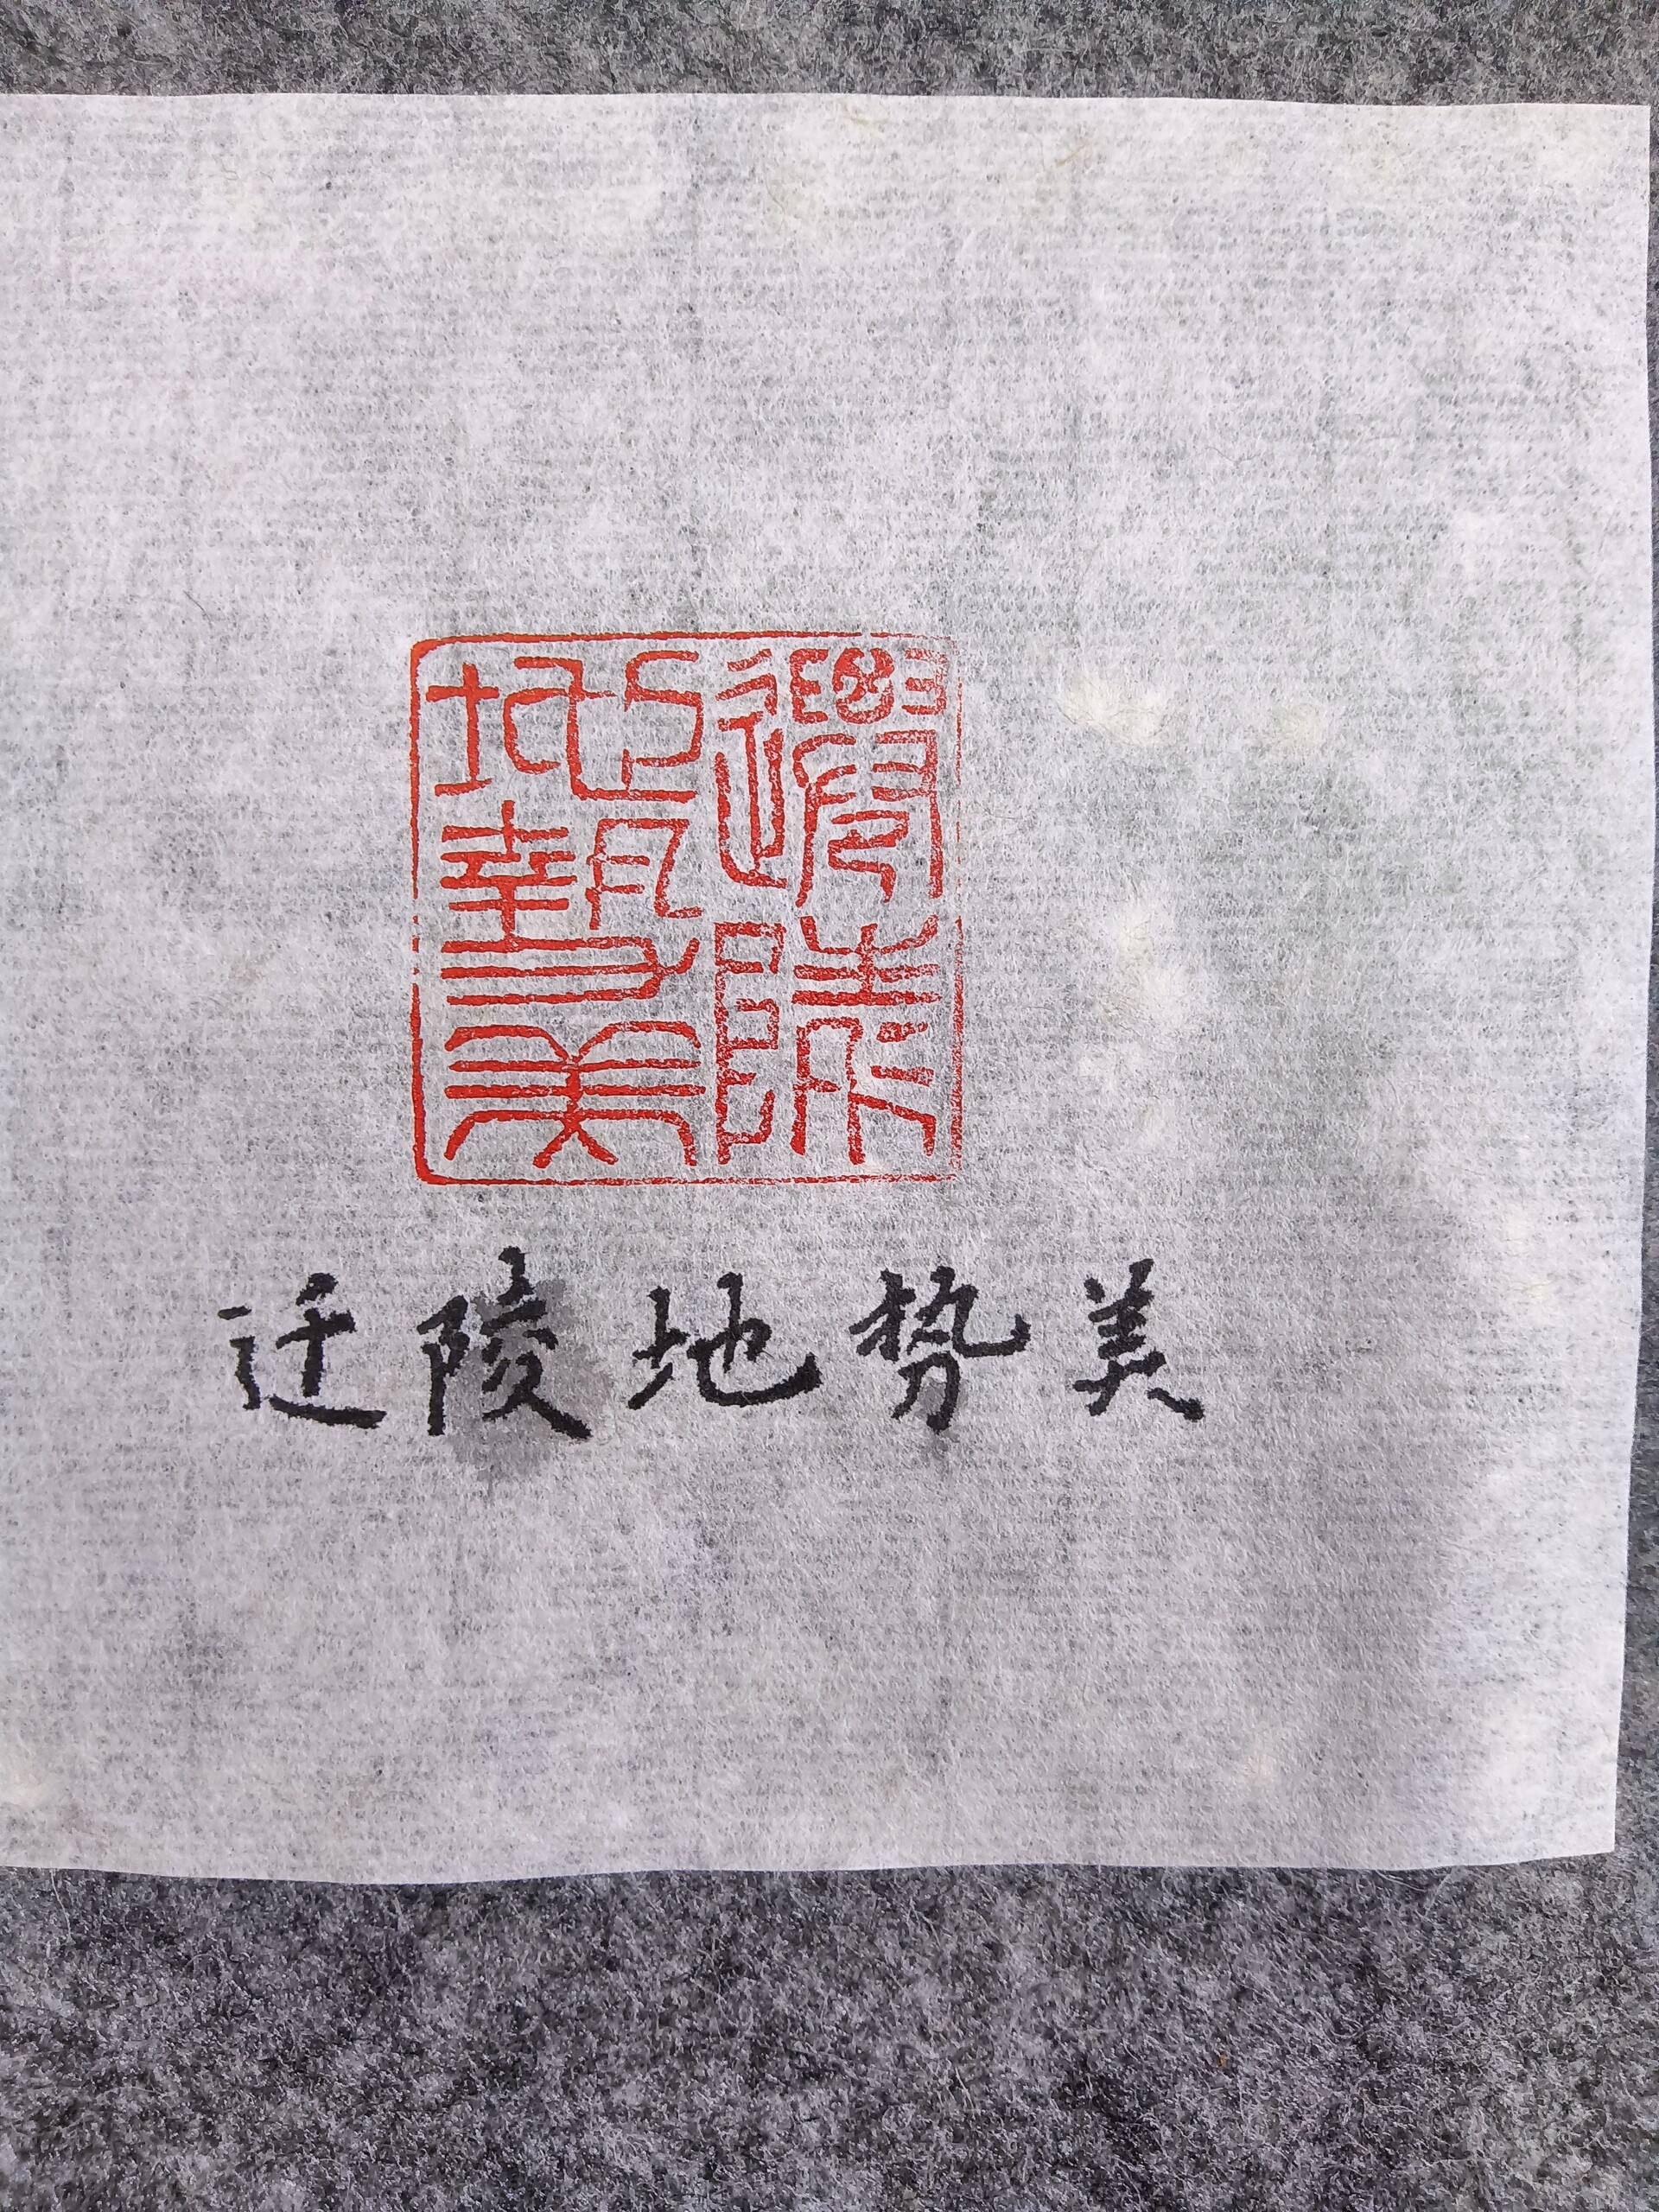 遷陵
地勢美
迁陵地势美